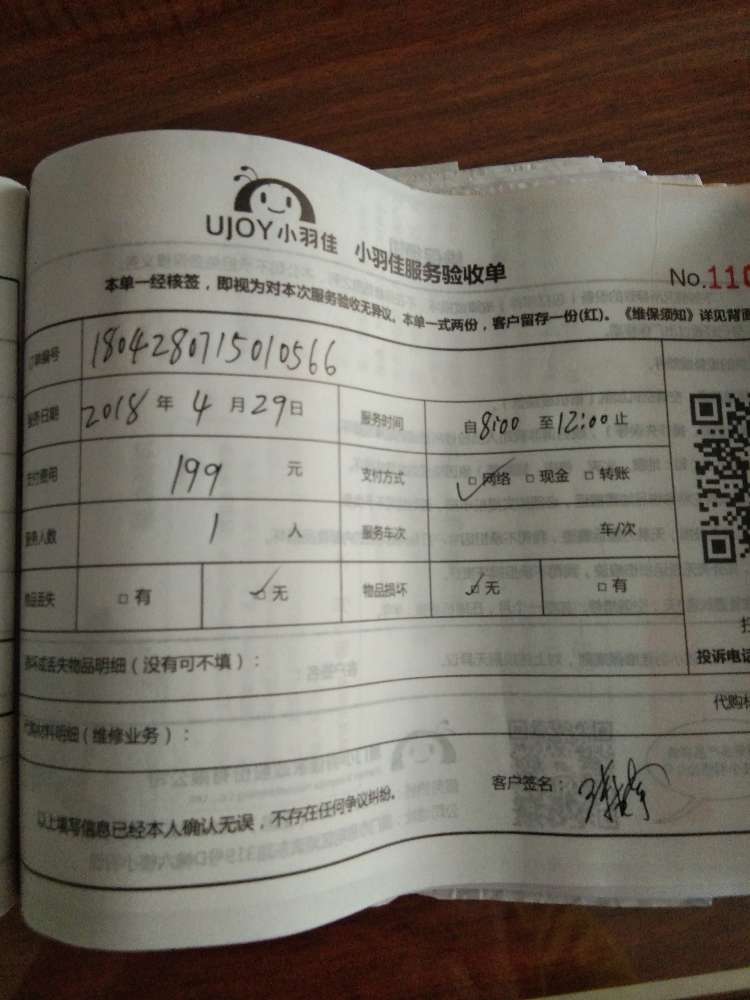 UJOY小羽佳 小羽佳服务验收单
No.110
本单一经核签，即视为对本次服务验收无异议。本单一式两份，客户留存一份(红)。《维保须知》详见背面
订单编号 1804280715010566
服务日期 2018年4月29日 服务时间 自8:00至12:00止
支付费用 199元 支付方式 □网络 □现金 □转账
服务人数 1人 服务车次 车/次
物品丢失 □有 □无 物品损坏 □无 □有
损坏或丢失物品明细（没有可不填）：
投诉电话
代购材料明细（维修业务）：
代购材
客户签名：
以上填写信息已经本人确认无误，不存在任何争议纠纷。